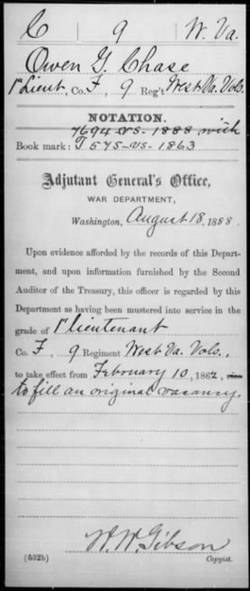 C 9 W. Va.
Owen G. Chase
1" Lieut, Co. F, 9 Reg't West Va. Vols.
NOTATION.
7694-VS-1888 with
Book mark: T 575-VS-1863
Adjutant General's Office,
WAR DEPARTMENT,
Washington, August 18, 1888.
Upon evidence afforded by the records of this Depart-
ment, and upon information furnished by the Second
Auditor of the Treasury, this officer is regarded by this
Department as having been mustered into service in the
grade of 1" lieutenant
Co. F, 9 Regiment West Va. Vols.,
to take effect from February 10, 1862,
to fill an original vacancy.
W. W. Gibson
(532b) Copyist.